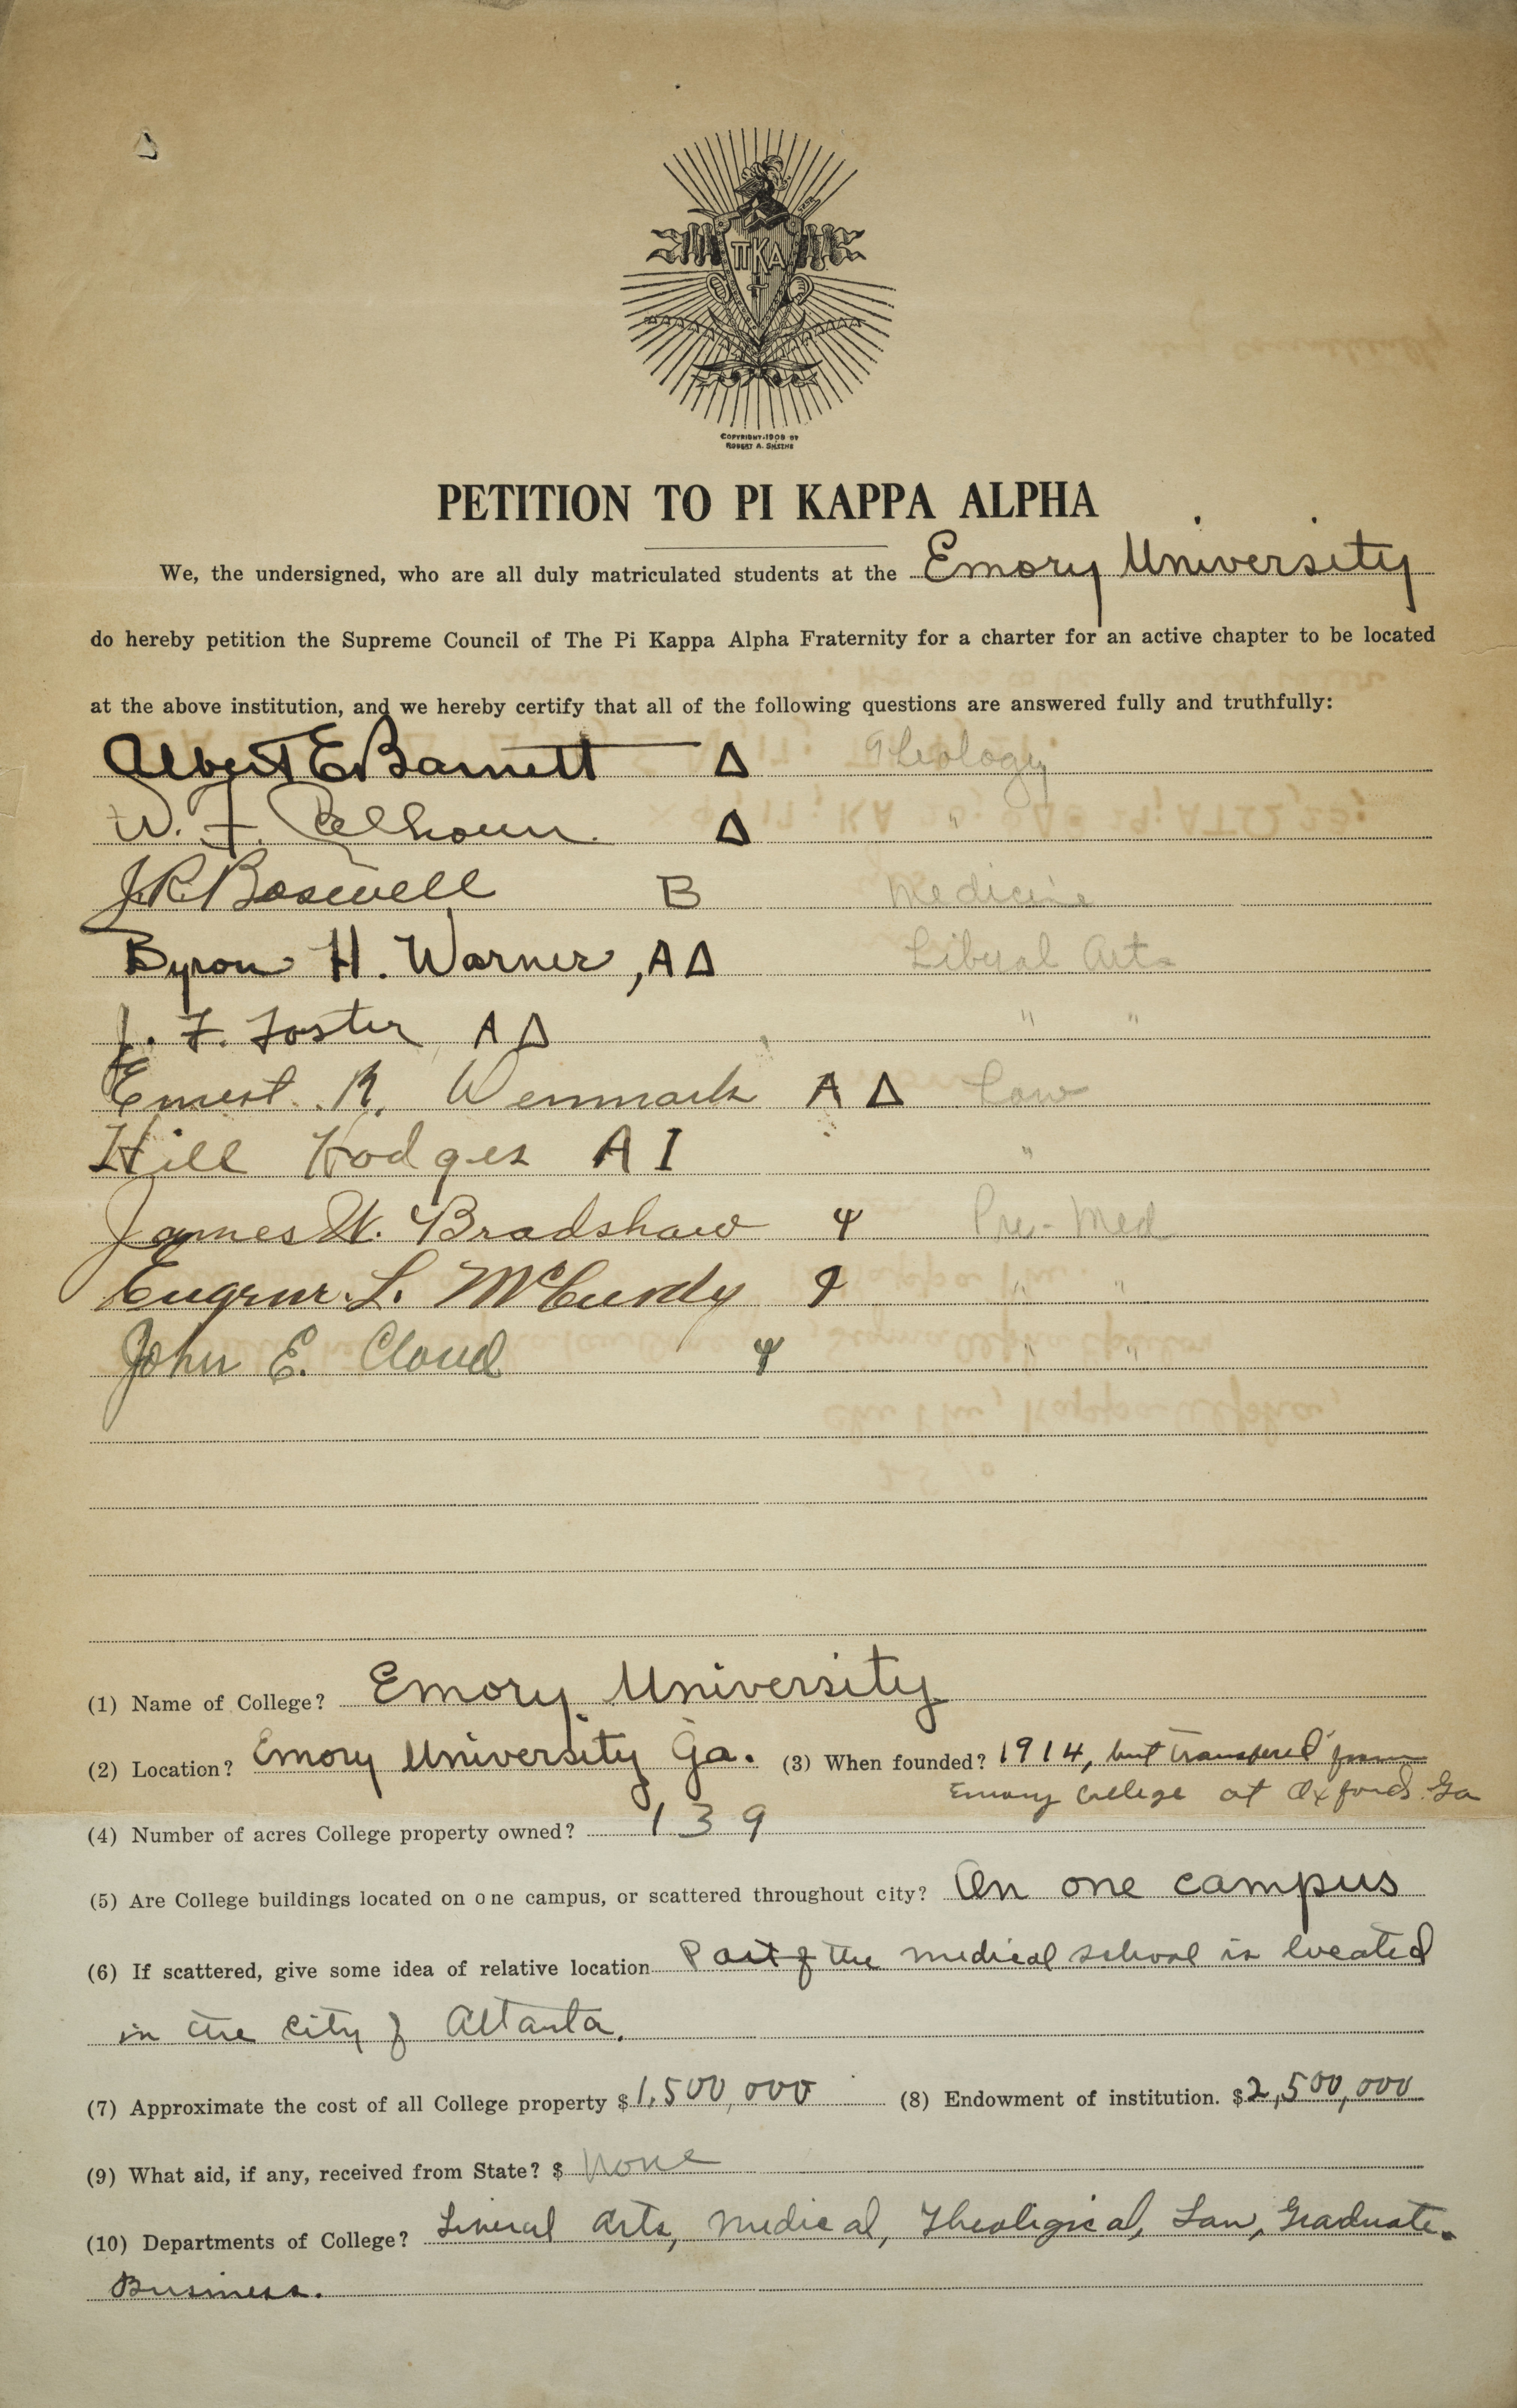 ΠΚΑ
COPYRIGHT·1908 BY
ROBERT A. SMYTHE
PETITION TO PI KAPPA ALPHA
We, the undersigned, who are all duly matriculated students at the Emory University
do hereby petition the Supreme Council of The Pi Kappa Alpha Fraternity for a charter for an active chapter to be located
at the above institution, and we hereby certify that all of the following questions are answered fully and truthfully:
Albert E. Barnett Δ Theology
W. F. Calhoun. Δ "
J.R. Boswell B Medicine
Byron H. Warner, A Δ Liberal Arts
J. F. Foster A Δ " "
Ernest. R. Wenmark A Δ Law
Hill Hodges A I "
James W. Bradshaw Ψ Pre-Med
Eugene. L. McCurdy Ψ " "
John E. Cloud Ψ " "
(1) Name of College? Emory University
(2) Location? Emory University Ga. (3) When founded? 1914, but transfered from
Emory College at Oxford. Ga
(4) Number of acres College property owned? 139
(5) Are College buildings located on one campus, or scattered throughout city? On one campus
(6) If scattered, give some idea of relative location Part of the medical school is located
in the city of Altanta.
(7) Approximate the cost of all College property $ 1,500,000 (8) Endowment of institution. $ 2,500,000
(9) What aid, if any, received from State? $ none
(10) Departments of College? Liberal Arts, Medical, Theological, Law, Graduate.
Business.